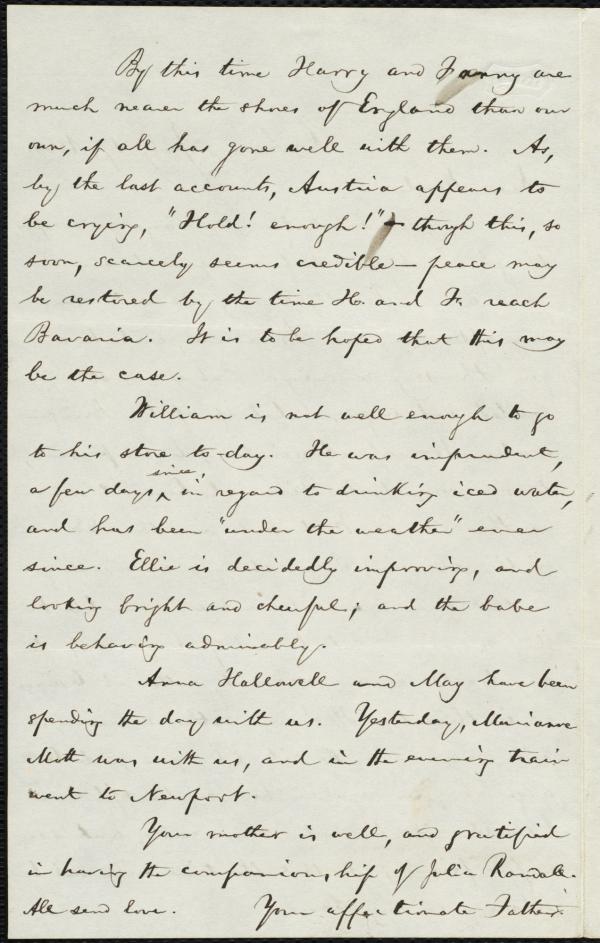 By this time Harry and Fanny are
much nearer the shores of England than our
own, if all has gone well with them. As,
by the last accounts, Austria appears to
be crying, "Hold! enough!" — though this, so
soon, scarcely seems credible — peace may
be restored by the time H. and F. reach
Bavaria. It is to be hoped that this may
be the case.
William is not well enough to go
to his store to-day. He was imprudent,
a few days since, in regard to drinking iced water,
and has been "under the weather" ever
since. Ellie is decidedly improving, and
looking bright and cheerful; and the babe
is behaving admirably.
Anna Hallowell and May have been
spending the day with us. Yesterday, Marianne
Mott was with us, and in the evening train
went to Newport.
Your mother is well, and gratified
in having the companionship of Julia Randall.
All send love. Your affectionate Father.